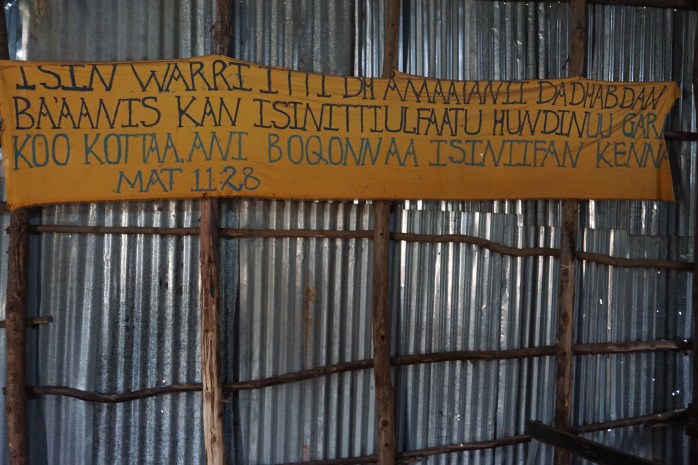 ISIN WARRI ITTI DHAMAATANII DADHABDAN
BA'AANIS KAN ISINITTI ULFAATU HUNDINUU GARA
KOO KOTTAA, ANI BOQONNAA ISINIIFAN KENNA
MAT 11:28